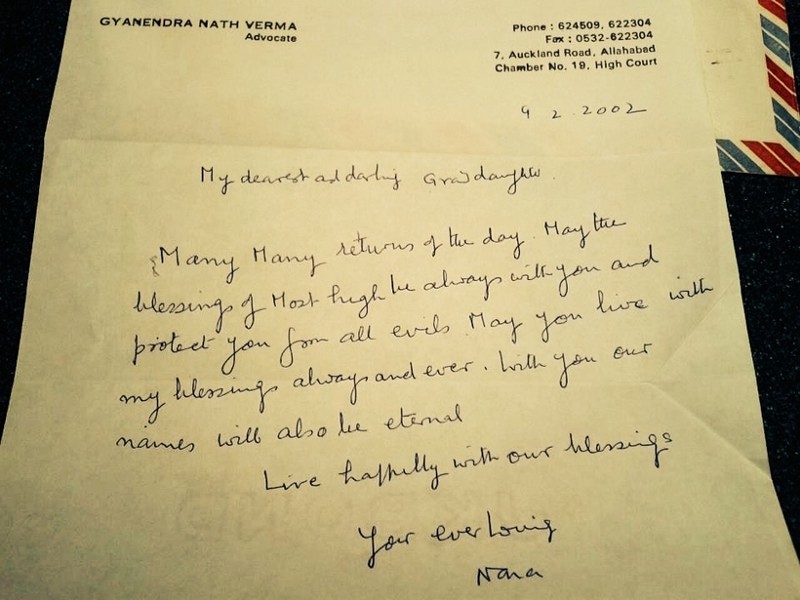 GYANENDRA NATH VERMA
Advocate
Phone : 624509, 622304
Fax : 0532-622304
7, Auckland Road, Allahabad
Chamber No. 19, High Court
9 2 2002
My dearest and darling Grand daughter.
Many Many returns of the day. May the
blessings of Most high be always with you and
protect you from all evils. May you live with
my blessings always and ever. With you our
names will also be eternal
Live happily with our blessings
Your ever loving
Nana